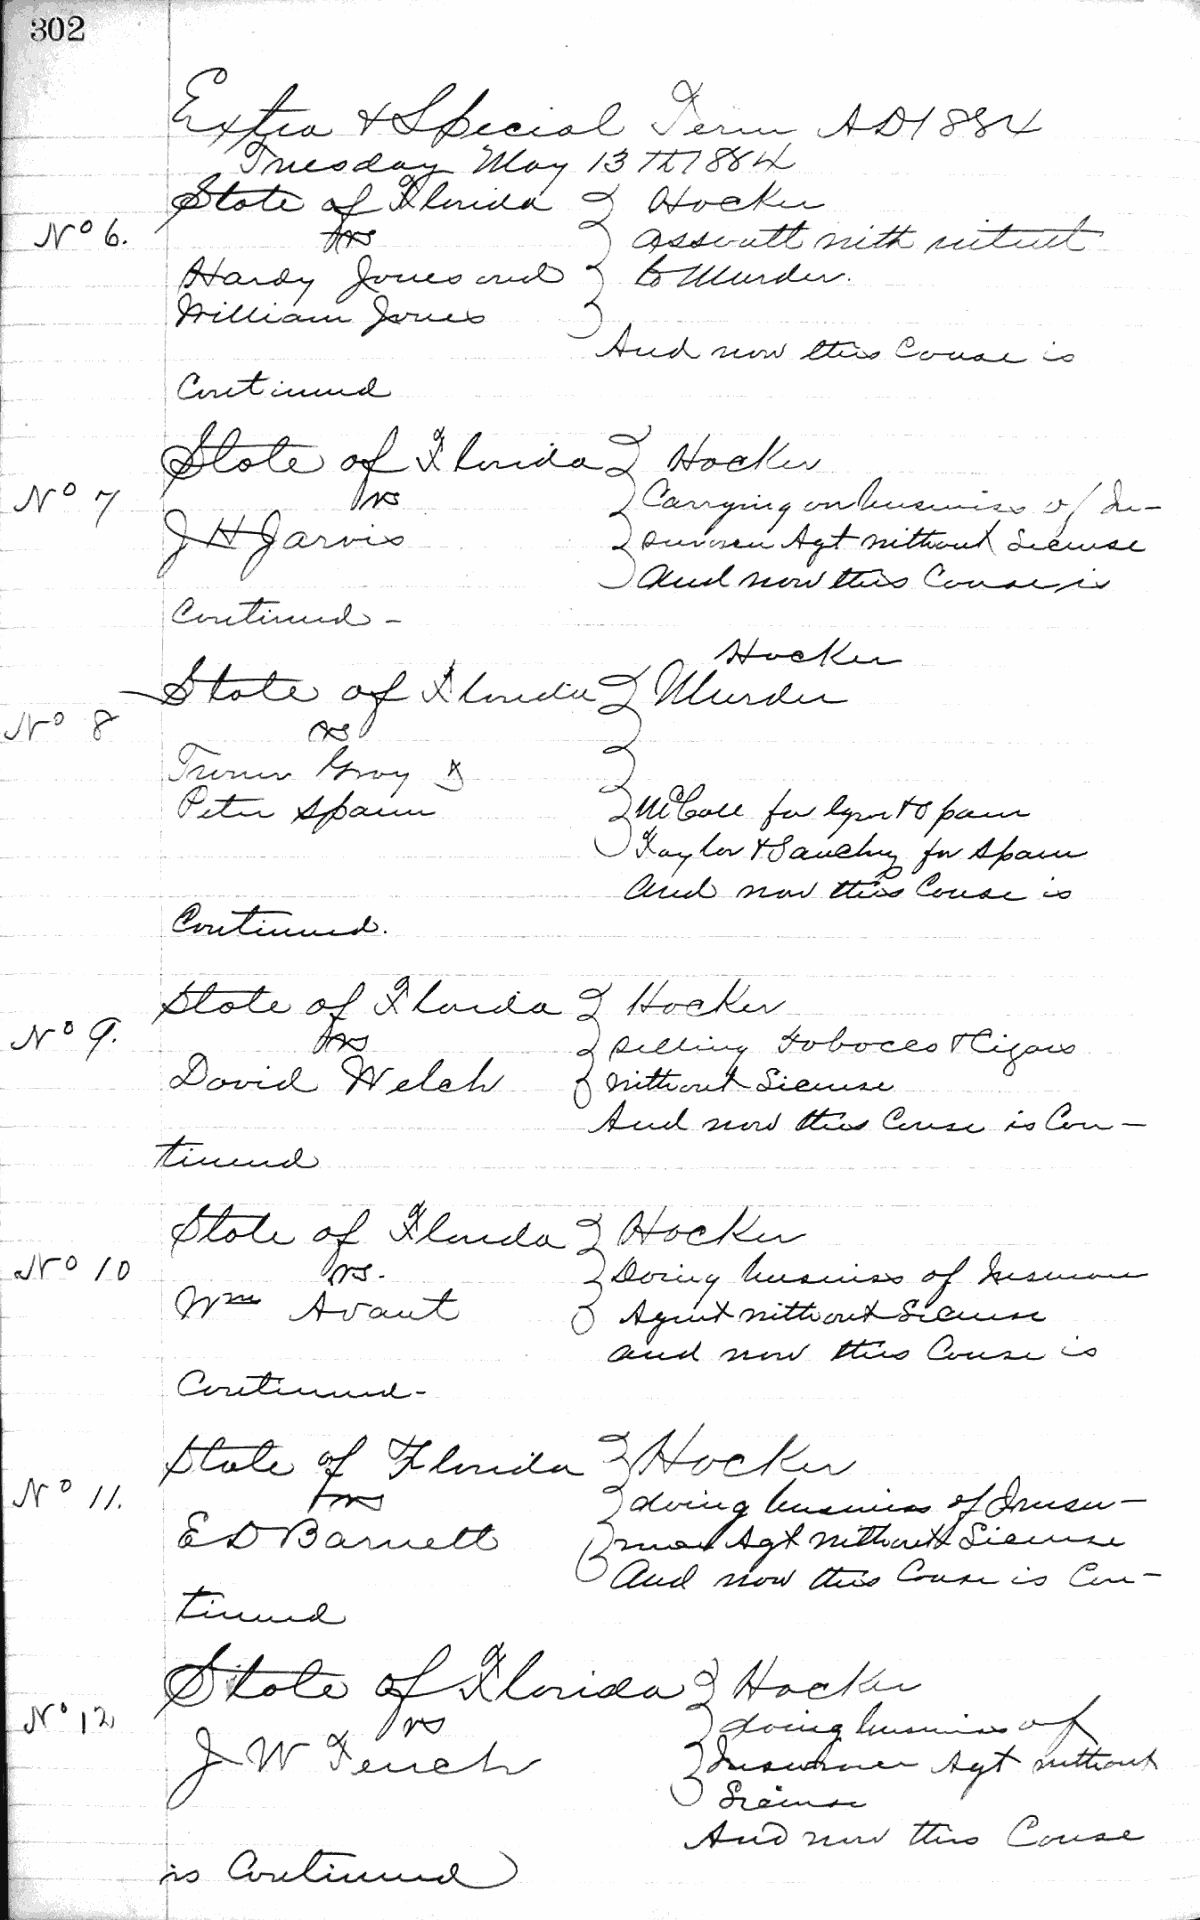 302
Extra & Special Term AD 1884
Tuesday May 13th 1884
State of Florida Hocker
No 6. vs assault with intent
Hardy Jones and to Murder.
William Jones
And now this Cause is
Continued
State of Florida Hocker
No 7 vs Carrying on business of In-
J H Jarvis surance Agt without License
and now this Cause is
Continued -
Hocker
State of Florida Murder
No 8 vs
Turner Gray &
Peter Spann McCall for Spann
Taylor & Sanchez for Spann
And now this Cause is
Continued.
State of Florida Hocker
No 9. vs Selling Tobacco & Cigars
David Welch without License
And now this Cause is Con-
tinued
State of Florida Hocker
No 10 vs. Doing business of Insurance
Wm Avant Agent without License
and now this Cause is
Continued-
State of Florida Hocker
No 11. vs doing business of Insu-
E D Barnett rance Agt without License
And now this Cause is Con-
tinued
State of Florida Hocker
No 12 vs doing business of
J W Tench Insurance Agt without
License
And now this Cause
is Continued